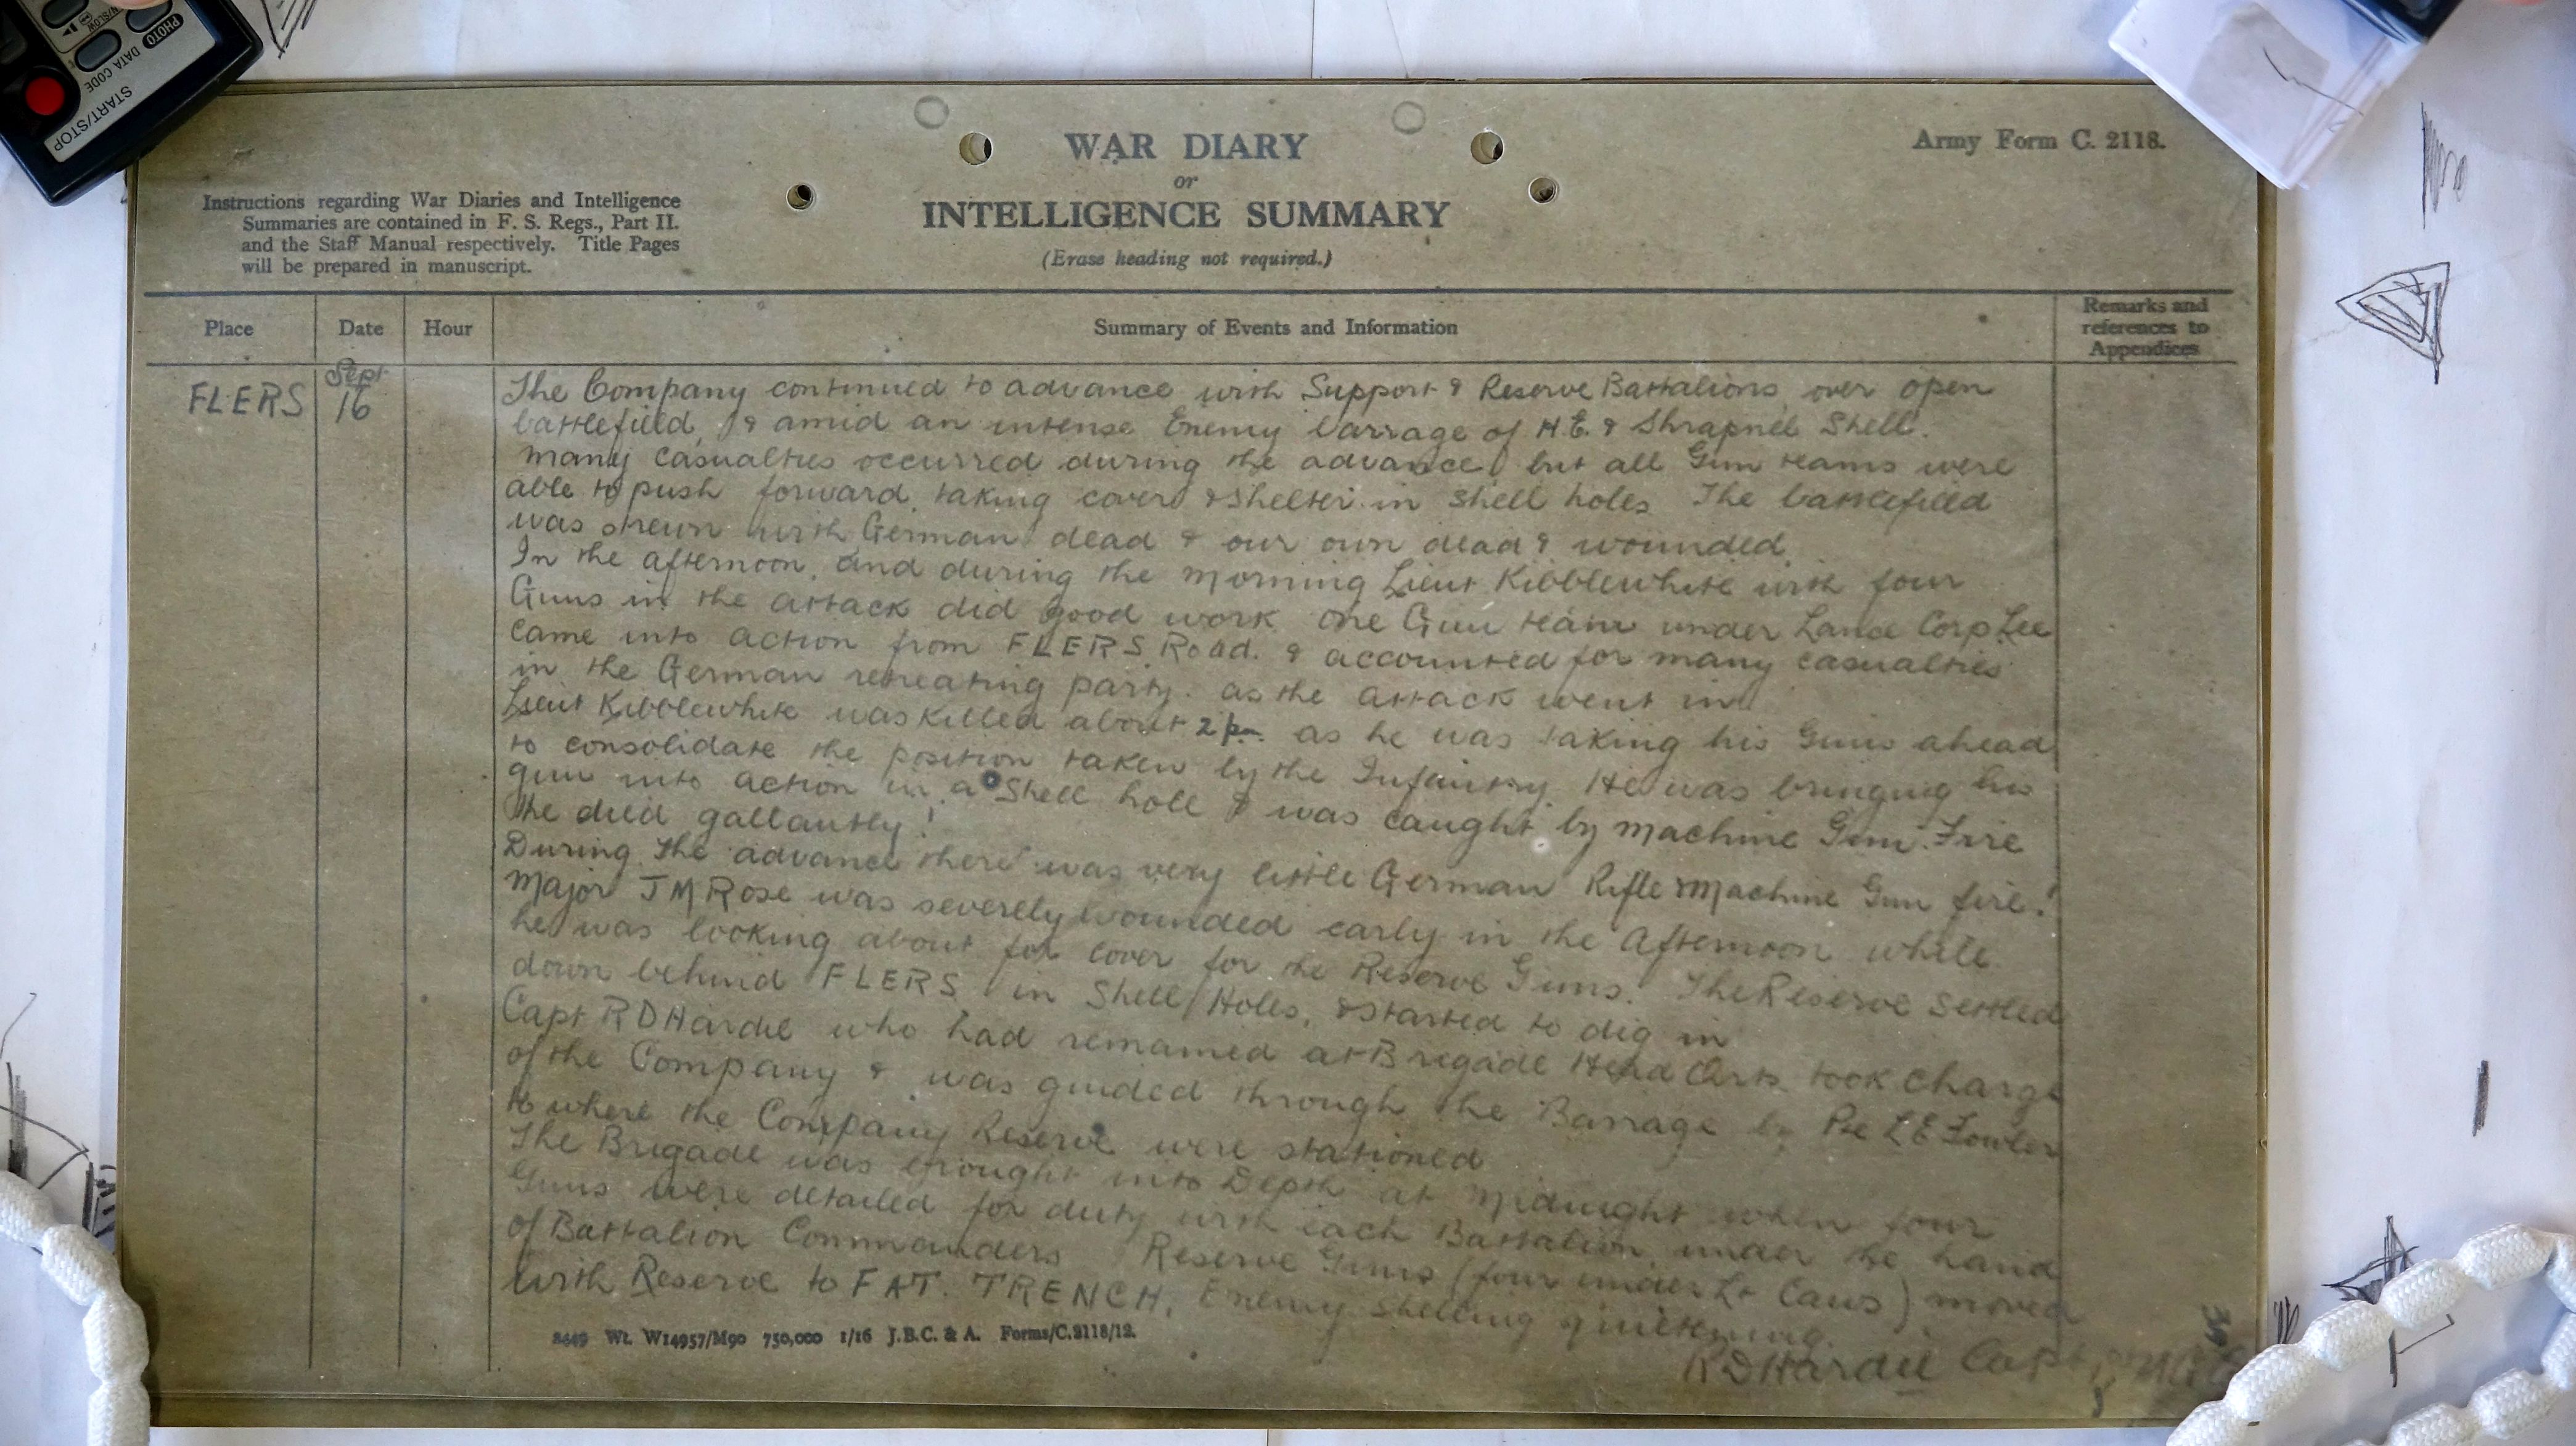 PHOTO
DATA CODE
START/STOP
WAR DIARY
or
INTELLIGENCE SUMMARY
(Erase heading not required.)
Army Form C. 2118.
Instructions regarding War Diaries and Intelligence
Summaries are contained in F. S. Regs., Part II.
and the Staff Manual respectively. Title Pages
will be prepared in manuscript.
Place Date Hour Summary of Events and Information Remarks and
references to
Appendices
FLERS Sept
16
The Company continued to advance with Support & Reserve Battalions over open
battlefield, & amid an intense Enemy barrage of H.E. & Shrapnel Shell.
Many casualties occurred during the advance, but all Gun teams were
able to push forward, taking cover & shelter in shell holes. The battlefield
was strewn with German dead & our own dead & wounded
In the afternoon, and during the morning Lieut Kibblewhite with four
Guns in the attack did good work. One Gun team under Lance Corp Lee
came into action from FLERS Road. & accounted for many casualties
in the German retreating party. as the attack went in
Lieut Kibblewhite was killed about 2 pm as he was taking his Guns ahead
to consolidate the position taken by the Infantry. He was bringing his
gun into action in a Shell hole & was caught by machine Gun Fire
He died gallantly!
During the advance there was very little German Rifle & Machine Gun fire!
Major J M Rose was severely wounded early in the Afternoon while
he was looking about for cover for the Reserve Guns. The Reserve settled
down behind FLERS in Shell Holes, & started to dig in
Capt R D Hardie who had remained at Brigade Head Qrts took charge
of the Company & was guided through the Barrage by Pte L E Fowler
to where the Company Reserve were stationed
The Brigade was brought into Depth at Midnight when four
Guns were detailed for duty with each Battalion under the hand
of Battalion Commanders Reserve Guns (four under Lt Caws) moved
with Reserve to FAT. TRENCH. Enemy shelling quietening.
R D Hardie Capt
8449 Wt. W14957/M90 750,000 1/16 J.B.C. & A. Forms/C.2118/12.